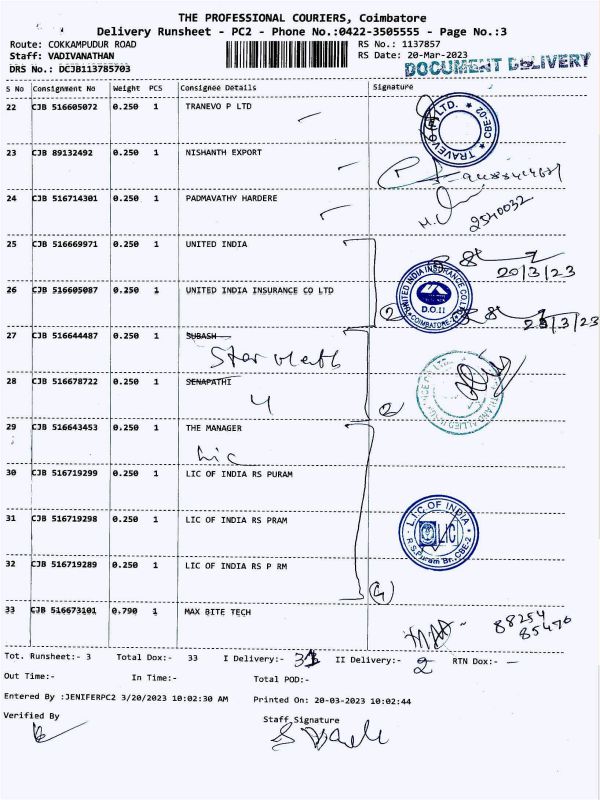 THE PROFESSIONAL COURIERS, Coimbatore
Delivery Runsheet - PC2 - Phone No.:0422-3505555 - Page No.:3
Route: COKKAMPUDUR ROAD
RS No.: 1137857
Staff: VADIVANATHAN
RS Date: 20-Mar-2023
DRS No.: DCJB113785703
DOCUMENT DELIVERY
S No Consignment No Weight PCS Consignee Details Signature
22 CJB 516605072 0.250 1 TRANEVO P LTD
TRAVEVO (P) LTD. ★ CBE-02 ★
23 CJB 89132492 0.250 1 NISHANTH EXPORT
24 CJB 516714301 0.250 1 PADMAVATHY HARDERE
2540032
25 CJB 516669971 0.250 1 UNITED INDIA
20/3/23
26 CJB 516605087 0.250 1 UNITED INDIA INSURANCE CO LTD
UNITED INDIA INSURANCE CO LTD
D.O.11
COIMBATORE
2
27 CJB 516644487 0.250 1 SUBASH
Star
28 CJB 516678722 0.250 1 SENAPATHI
2
29 CJB 516643453 0.250 1 THE MANAGER
Lic
30 CJB 516719299 0.250 1 LIC OF INDIA RS PURAM
31 CJB 516719298 0.250 1 LIC OF INDIA RS PRAM
L.I.C OF INDIA
LIC
R.S.Puram Br. CBE-2
32 CJB 516719289 0.250 1 LIC OF INDIA RS P RM
4
33 CJB 516673101 0.790 1 MAX BITE TECH
88254
85476
Tot. Runsheet:- 3 Total Dox:- 33 I Delivery:- 31 II Delivery:- 2 RTN Dox:- -
Out Time:- In Time:- Total POD:-
Entered By :JENIFERPC2 3/20/2023 10:02:30 AM Printed On: 20-03-2023 10:02:44
Verified By
Staff Signature